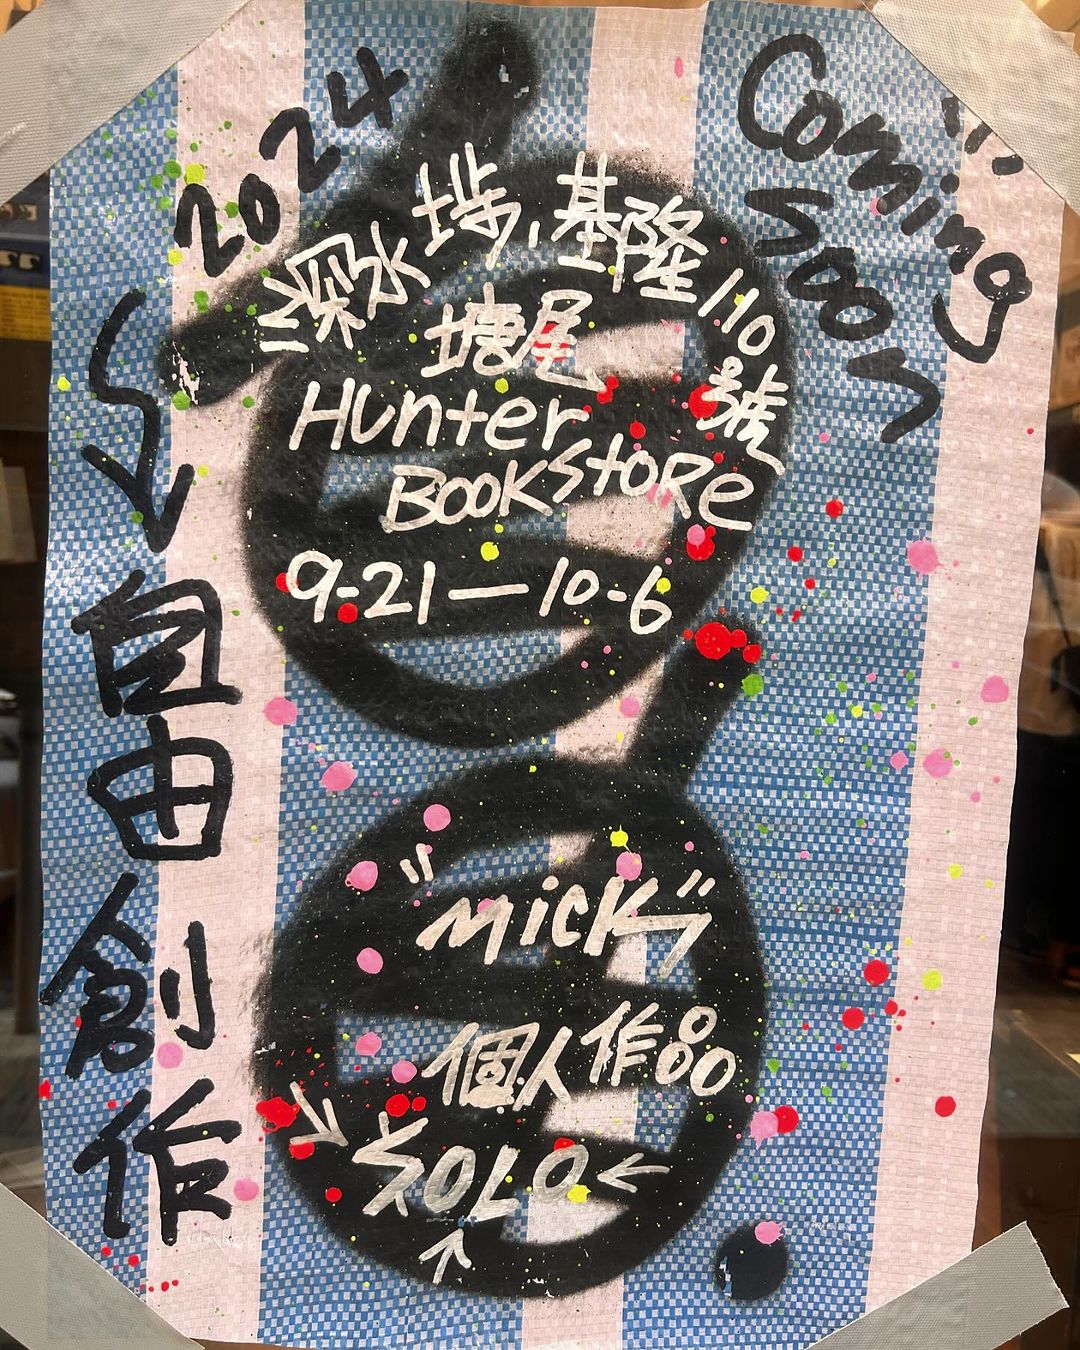 2024
Coming
Soon
深水埗,基隆110號
塘尾
Hunter
BOOKStoRe
9-21—10-6
自由創作
"MicK"
個人作品
SOLO